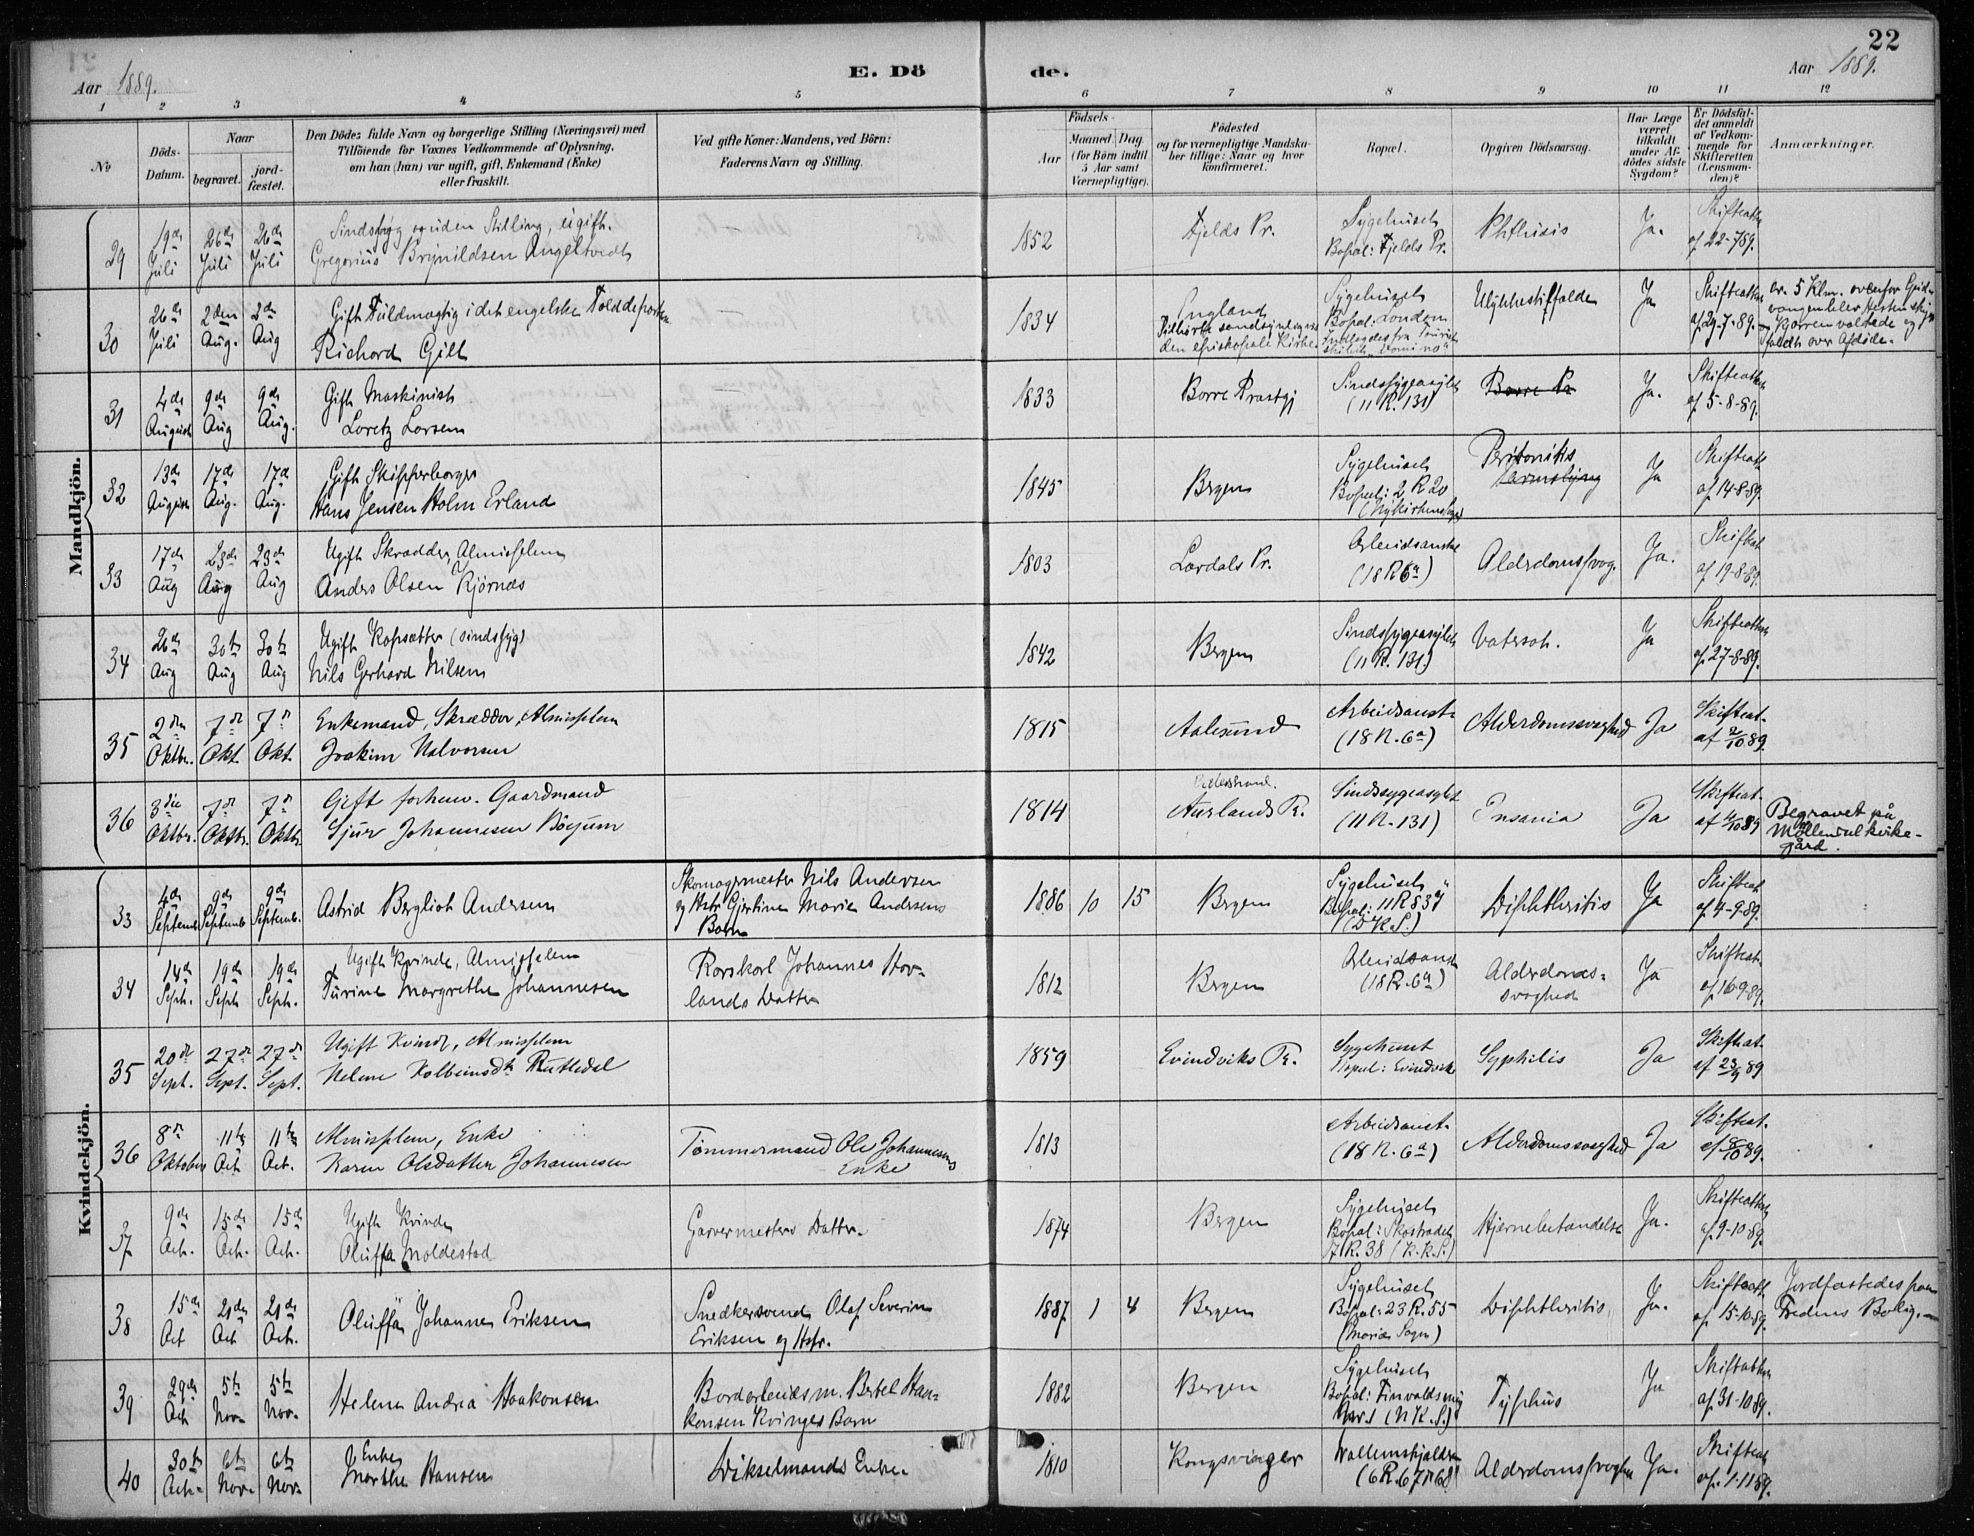 22
Aar 1889.
E. Dö
de.
Aar 1889.
1 2 3 4 5 6 7 8 9 10 11 12
No
Döds-
Datum.
Naar
begravet.
jord-
fæstet.
Den Dödes fulde Navn og borgerlige Stilling (Næringsvei) med
Tilföiende for Voxnes Vedkommende af Oplysning,
om han (hun) var ugift, gift, Enkemand (Enke)
eller fraskilt.
Ved gifte Koner: Mandens, ved Börn:
Faderens Navn og Stilling.
Födsels-
Aar
Maaned. Dag.
(for Börn indtil
5 Aar samt
Værnepligtige).
Födested
og for værnepligtige Mandska-
ber tillige: Naar og hvor
konfirmeret.
Bopæl.
Opgiven Dödsaarsag.
Har Læge
været
tilkaldt
under Af-
dödes sidste
Sygdom?
Er Dödsfal-
det anmeldt
af Vedkom-
mende for
Skifteretten
(Lensman-
den)?
Anmærkninger.
Mandkjön.
29 19de Juli 26de Juli 26de Juli Sindssyg uden Stilling, ugift.
Gregorius Brynildsen Angeltvedt 1852 Fjelds Pr. Sygehuset
Bopæl: Fjelds Pr. Phthisis Ja. Skifteatt.
af 22-7-89.
30 26de Juli 2den Aug. 2den Aug Gift Fuldmægtig i det engelske Tolddeparte
Richard Gill 1834 England
Tilhørte sandsynligvis
den episkopale Kirke. Sygehuset
Bopæl: London
Ulykkestilfælde Ja Skifteatt.
af 29-7-89.
31 4de August 9de Aug 9de Aug. Gift Maskinist
Loretz Larsen 1833 Borre Præstgj Sindssygeasylet
(11 R. 131) Borre Pr Ja. Skifteatt.
af 5-8-89.
32 13de August 17de Aug. 17de Aug. Gift Skipperborger
Hans Jensen Holm Erland 1845 Bergen Sygehuset
Bopæl: 2 R 20
Peritonitis
Ja Skifteatt.
af 14-8-89.
33 17de Aug 23de Aug 23de Aug Ugift Skrædder, Almisselem
Anders Olsen Kjørnæs 1803 Lærdals Pr. Arbeidsanst
(18 R 6a) Alderdomssvag. Ja. Skifteat
af 19-8-89.
34 26de Aug 30te Aug 30te Aug Ugift Kopsætter (sindssyg)
Nils Gerhard Nilsen 1842 Bergen Sindssygeasylet
(11 R. 131) Vatersot. Ja Skifteatt.
af 27-8-89.
35 2den Oktbr. 7de Okt. 7de Okt. Enkemand, Skrædder, Almisselem
Joakim Halvorsen 1815 Aalesund Arbeidsanst.
(18 R. 6a) Alderdomssvaghed Ja Skifteat.
af 2/10 89
36 3die Oktbr. 7de Oktbr. 7de Oktbr. Gift forhenv. Gaardmand
Sjur Johannesen Böyum 1814 Aurlands Pr. Sindssygeasylet
(11 R. 131) Insania Ja Skifteat.
af 4/10 89 Begravet på
Møllendal kirke-
gård.
Kvindekjön.
33 4de Septemb. 9de Septemb. 9de Septemb. Astrid Bergliot Andersen Skomagermester Nils Andersen
og Hstr. Gjertine Marie Andersens
Barn 1886 10 15 Bergen Sygehuset
Bopæl: 11 R 834
(D K. S.) Diphtheritis Ja Skifteat.
af 4-9-89.
34 14de Sept. 19de Sept 19de Sept. Ugift Kvinde, Almisselem
Turine Margrethe Johannesen Rorskarl Johannes Hov-
lands Datter 1812 Bergen Arbeidsanst
(18 R. 6a) Alderdoms-
svaghed Ja Skifteat.
af 16-9-89.
35 20de Sept. 27de Sept. 27de Sept. Ugift Kvinde, Almisselem
Helene Kolbeinsdtr. Ruttedal 1859 Evindviks Pr. Sygehuset
Bopæl: Evindvik Syphilis Ja Skifteat.
af 23/9 89
36 8de Oktober 11te Oct 11te Oct. Almisselem, Enke
Karen Olsdatter Johannesen Tømmermand Ole Johannesens
Enke 1813 Arbeidsanst.
(18 R. 6a) Alderdomssvaghed Ja Skifteat.
af 8/10 89.
37 9de Oct. 15de Oct. 15de Oct. Ugift Kvinde
Oluffa Moldestad Garvermesters Datter. 1874 Bergen Sygehuset
Bopæl: Skostrædet
7 R. 38 (K.K.S.) Hjernebetændelse Ja. Skifteatt.
af 9-10-89.
38 15de Oct 21de Oct 21de Oct. Oluffa Johanne Eriksen Snedkersvend Olaf Severin
Eriksen og Hstr. 1887 1 4 Bergen Sygehuset
Bopæl: 23 R. 55
(Mariæ Sogn) Diphtheritis Ja. Skifteatt.
af 15-10-89. Jordfæstedes fra
Fredens Bolig.
39 29de Oct 5te Nov. 5te Nov. Helene Andrea Haakonsen Bordarbeidsm. Bertel Haa-
konsen Kvinges Barn 1882 Bergen Sygehuset
Typhus Ja Skifteatt.
af 31-10-89.
40 30te Oct. 6te Nov. 6te Nov. Enke
Marthe Hansen Vikselmands Enke. 1810 Kongsvinger
(6 R. 67 & 68) Alderdomssvaghed Ja. Skifteatt
af 1-11-89.